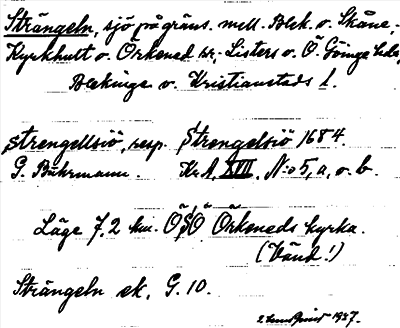 Strängeln, sjö på gräns. mell. Blek. o. Skåne,
Kyrkhult o. Örkened sr, Listers o. Ö. Göinge hdr,
Blekinge o. Kristianstads l.
Strengellsiö, resp. Strengelsiö 1684.
G. Buhrmann. Kr. A. XVII, No 5, a, o. b.
Läge 7,2 km. ÖSÖ Örkeneds kyrka.
(Vänd!)
Strängeln ek. G. 10.
1937.